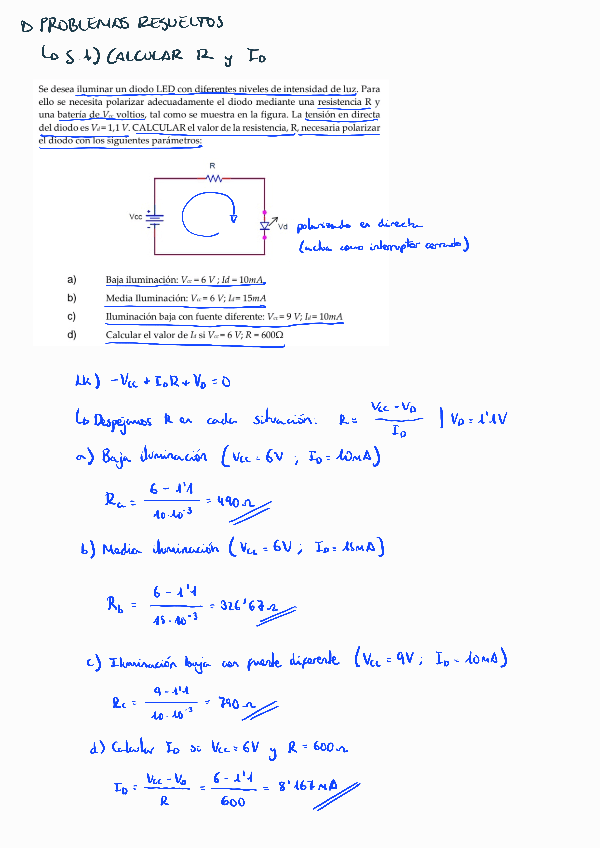 ▷ PROBLEMAS RESUELTOS
↳ 5.1) CALCULAR R y ID
Se desea iluminar un diodo LED con diferentes niveles de intensidad de luz. Para
ello se necesita polarizar adecuadamente el diodo mediante una resistencia R y
una batería de Vcc voltios, tal como se muestra en la figura. La tensión en directa
del diodo es Vd= 1,1 V. CALCULAR el valor de la resistencia, R, necesaria polarizar
el diodo con los siguientes parámetros:
R
Vcc
Vd
polarizado en directa
(actua como interruptor cerrado)
a) Baja iluminación: Vcc = 6 V ; Id = 10mA,
b) Media Iluminación: Vcc = 6 V; Id = 15mA
c) Iluminación baja con fuente diferente: Vcc = 9 V; Id = 10mA
d) Calcular el valor de Id si Vcc = 6 V; R = 600Ω
LK) -Vcc + IDR + VD = 0
↳ Despejamos R en cada situación. R = (Vcc - VD) / ID | VD = 1'1V
a) Baja iluminación (Vcc = 6V ; ID = 10mA)
Ra = (6 - 1'1) / (10·10⁻³) = 490Ω
b) Media iluminación (Vcc = 6V ; ID = 15mA)
Rb = (6 - 1'1) / (15·10⁻³) = 326'67Ω
c) Iluminación baja con fuente diferente (Vcc = 9V ; ID = 10mA)
Rc = (9 - 1'1) / (10·10⁻³) = 790Ω
d) Calcular ID si Vcc = 6V y R = 600Ω
ID = (Vcc - VD) / R = (6 - 1'1) / 600 = 8'167mA